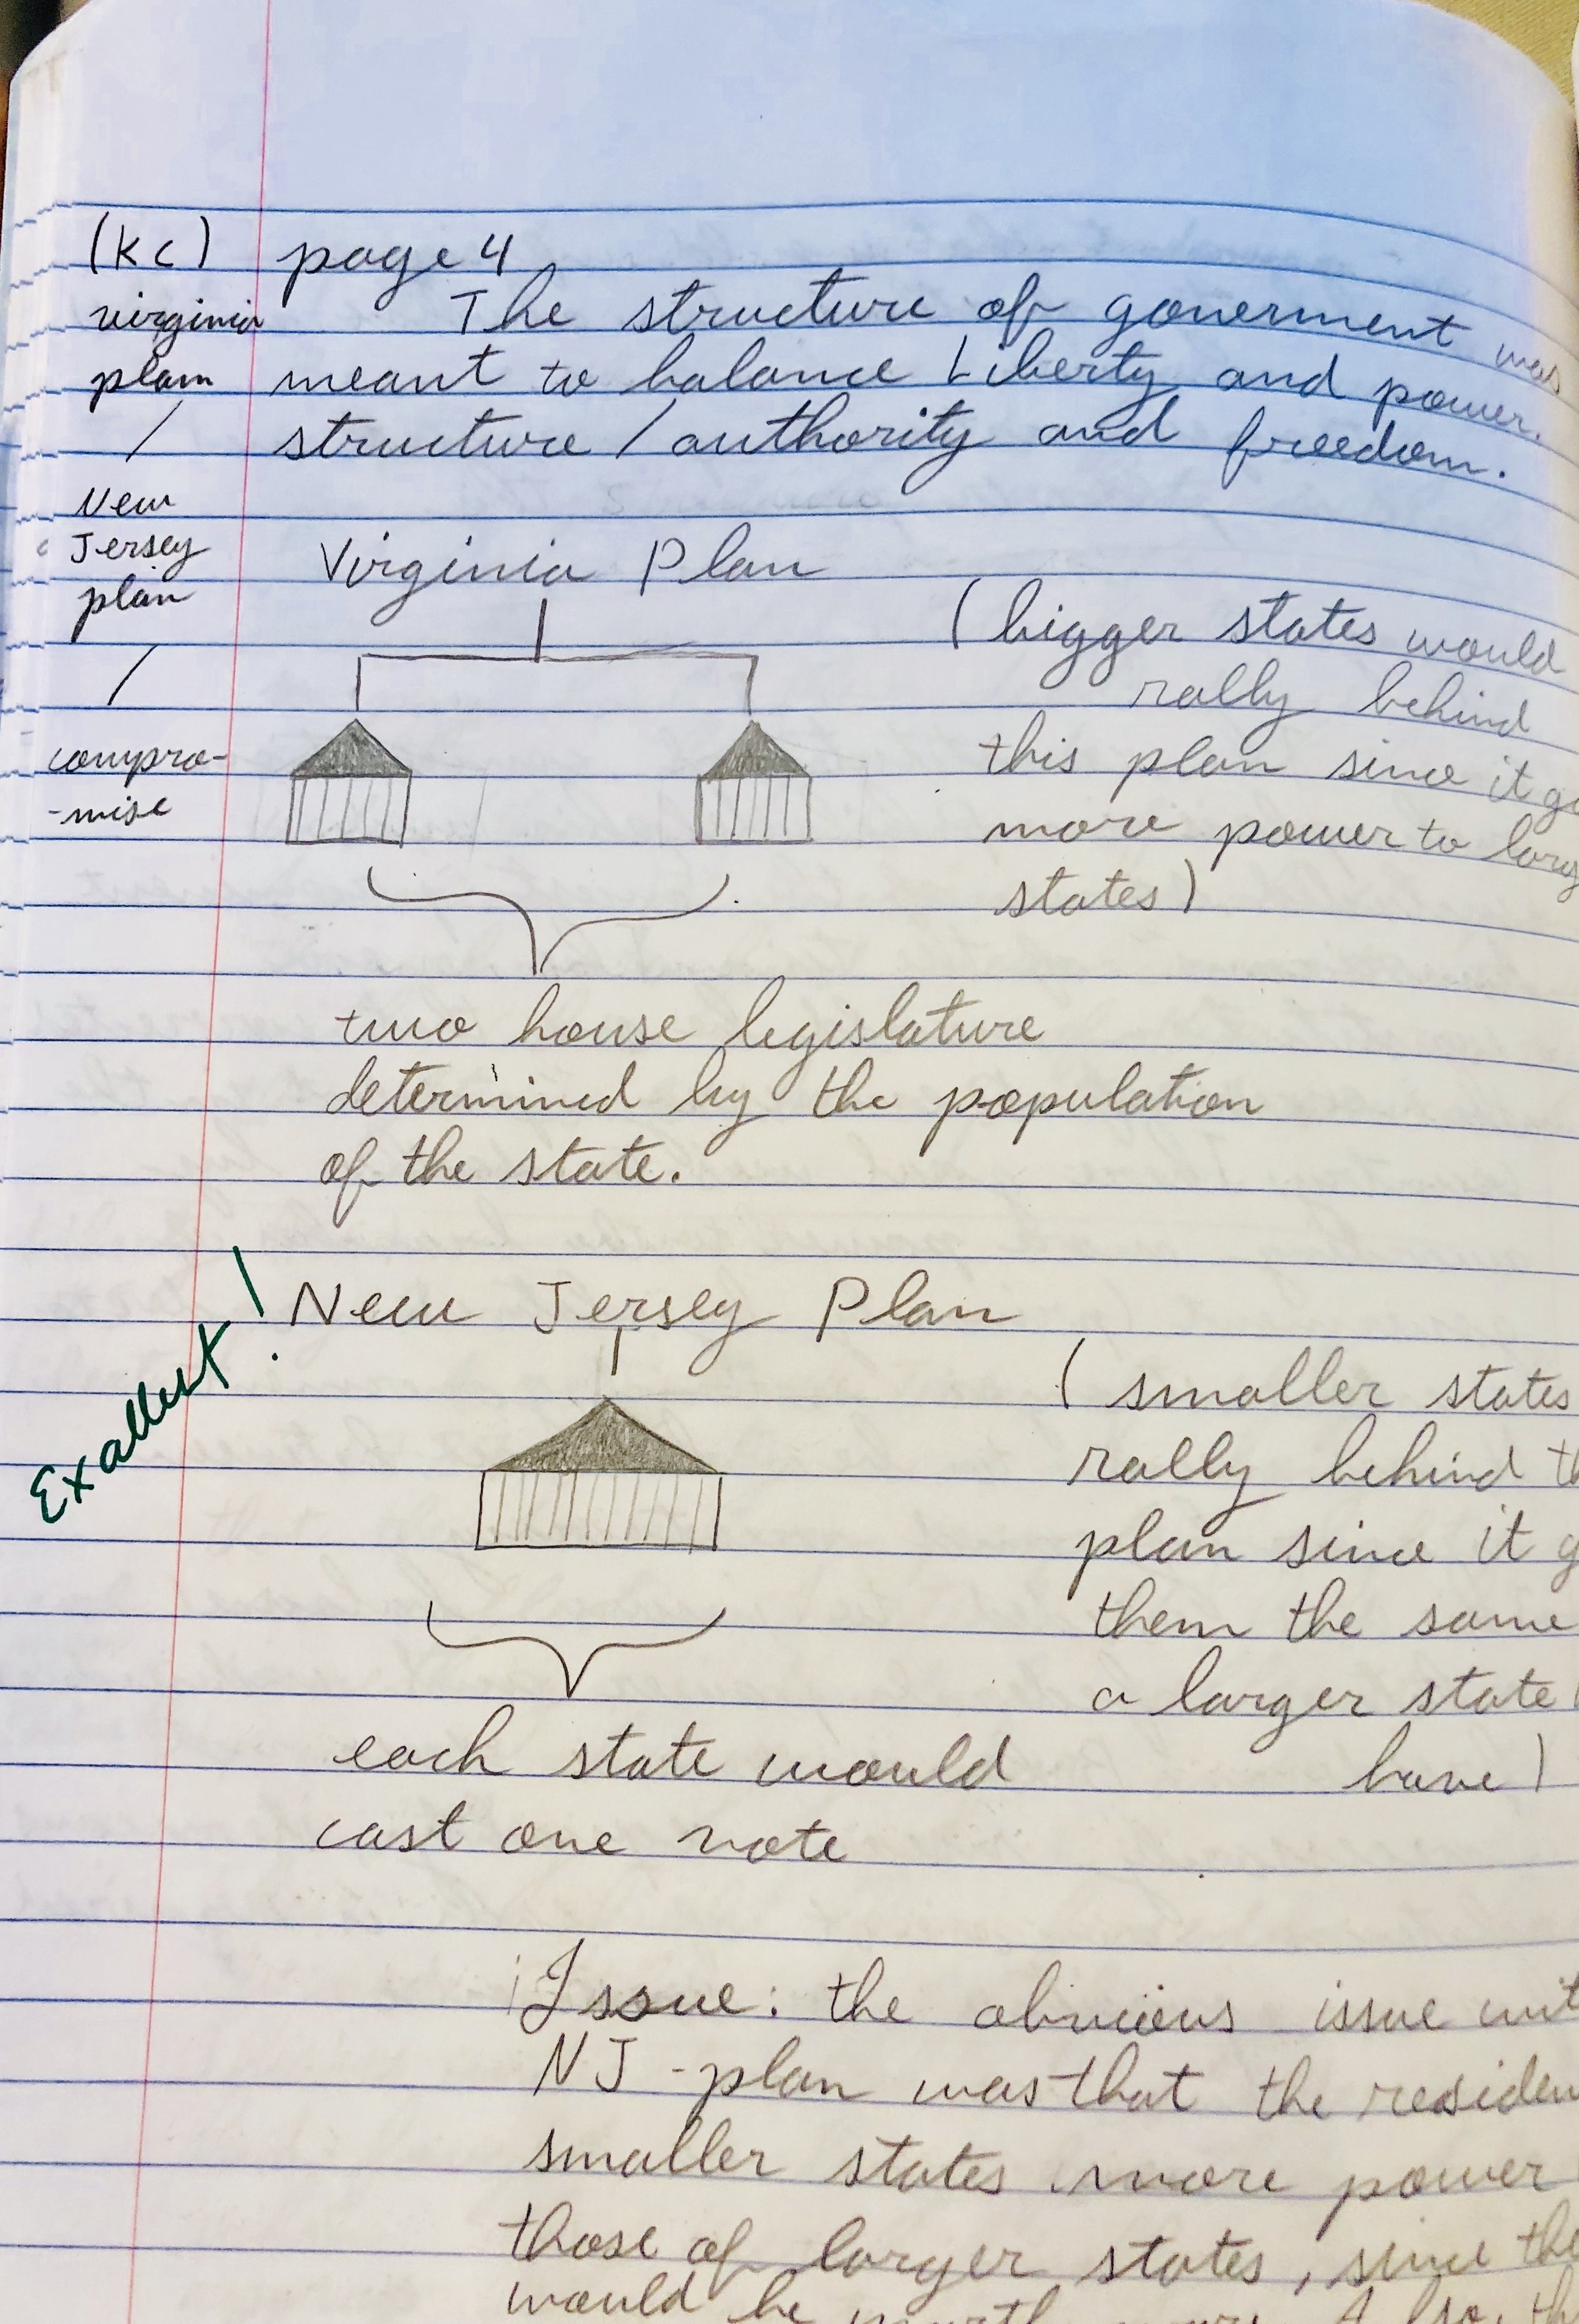 (KC) page 4
virginia
plan
/
New
Jersey
plan
/
compro-
-mise
The structure of goverment was
meant to balance Liberty and power.
structure / authority and freedom.
Virginia Plan
(bigger states would
rally behind
this plan since it
more power to
states)
two house legislature
determined by the population
of the state.
Exallent!
New Jersey Plan
(smaller states
rally behind
plan since it
them the same
a larger state
have)
each state would
cast one vote
Issue: the obvious issue
NJ-plan was that the
smaller states more power
those of larger states, since
would be